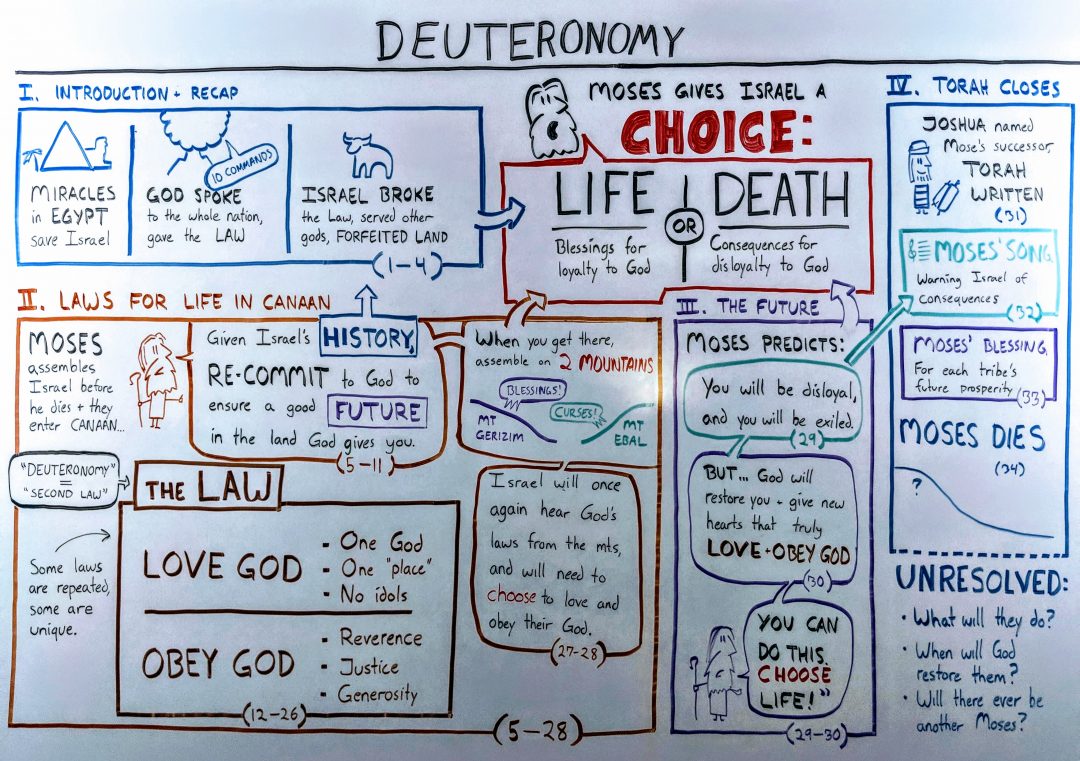 DEUTERONOMY
I. INTRODUCTION + RECAP
MIRACLES
in EGYPT
save Israel
10 COMMANDS
GOD SPOKE
to the whole nation,
gave the LAW
ISRAEL BROKE
the Law, served other
gods, FORFEITED LAND
(1-4)
MOSES GIVES ISRAEL A
CHOICE:
LIFE
OR
DEATH
Blessings for
loyalty to God
Consequences for
disloyalty to God
II. LAWS FOR LIFE IN CANAAN
MOSES
assembles
Israel before
he dies + they
enter CANAAN...
Given Israel's HISTORY,
RE-COMMIT to God to
ensure a good FUTURE
in the land God gives you.
(5-11)
When you get there,
assemble on 2 MOUNTAINS
BLESSINGS!
CURSES!
MT
GERIZIM
MT
EBAL
Israel will once
again hear God's
laws from the mts,
and will need to
choose to love and
obey their God.
(27-28)
"DEUTERONOMY"
=
"SECOND LAW"
THE LAW
Some laws
are repeated,
some are
unique.
LOVE GOD
- One God
- One "place"
- No idols
OBEY GOD
- Reverence
- Justice
- Generosity
(12-26)
(5-28)
III. THE FUTURE
MOSES PREDICTS:
You will be disloyal,
and you will be exiled.
(29)
BUT... God will
restore you + give new
hearts that truly
LOVE + OBEY GOD
(30)
YOU CAN
DO THIS.
CHOOSE
LIFE!"
(29-30)
IV. TORAH CLOSES
JOSHUA named
Mose's successor
TORAH
WRITTEN
(31)
MOSES' SONG
Warning Israel of
consequences
(32)
MOSES' BLESSING
For each tribe's
future prosperity
(33)
MOSES DIES
(34)
?
UNRESOLVED:
• What will they do?
• When will God
restore them?
• Will there ever be
another Moses?